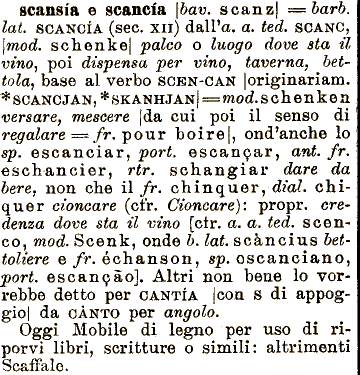 scansía e scancía |bav. scanz| = barb.
lat. SCANCÍA (sec. XII) dall'a. a. ted. SCANC,
|mod. schenke| palco o luogo dove sta il
vino, poi dispensa per vino, taverna, bet-
tola, base al verbo SCEN-CAN |originariam.
*SCANCJAN, *SKANHJAN| = mod. schenken
versare, mescere |da cui poi il senso di
regalare = fr. pour boire|, ond'anche lo
sp. escanciar, port. escançar, ant. fr.
eschancier, rtr. schangiar dare da
bere, non che il fr. chinquer, dial. chi-
quer cioncare (cfr. Cioncare): propr. cre-
denza dove sta il vino [cfr. a. a. ted. scen-
co, mod. Scenk, onde b. lat. scàncius bet-
toliere e fr. échanson, sp. oscanciano,
port. escanção]. Altri non bene lo vor-
rebbe detto per CANTÍA |con s di appog-
gio| da CÀNTO per angolo.
Oggi Mobile di legno per uso di ri-
porvi libri, scritture o simili: altrimenti
Scaffale.